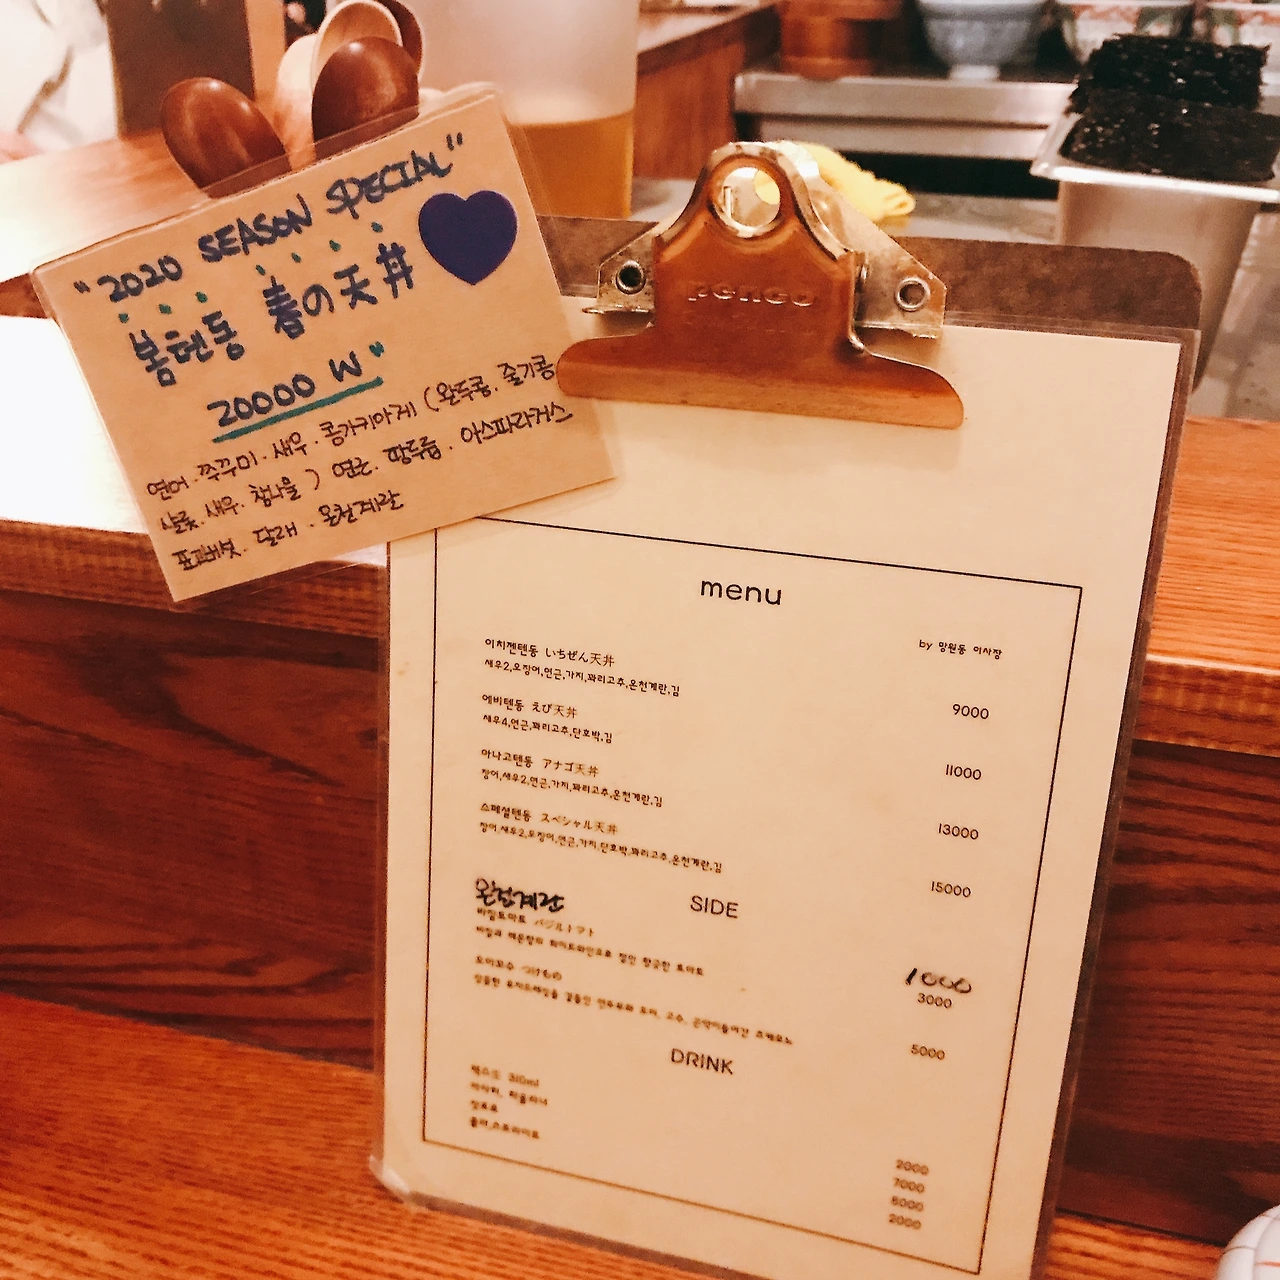 "2020 SEASON SPECIAL"
봄텐동 春の天丼
20000 W
연어 . 쭈꾸미 . 새우 . 콩가키아게 (완두콩 . 줄기콩
샬롯 . 새우 . 참나물) 연근 . 땅두릅 . 아스파라거스
표고버섯 . 달래 . 온천계란
penco
menu
by 망원동 이사장
이치젠텐동 いちぜん天丼
새우2,오징어,연근,가지,꽈리고추,온천계란,김
9000
에비텐동 えび天丼
새우4,연근,꽈리고추,단호박,김
11000
아나고텐동 アナゴ天丼
장어,새우2,연근,가지,꽈리고추,온천계란,김
13000
스페셜텐동 スペシャル天丼
장어,새우2,오징어,연근,가지,단호박,꽈리고추,온천계란,김
15000
SIDE
온천계란 1000
바질토마토 バジルトマト
바질과 레몬향의 화이트와인으로 절인 향긋한 토마토
3000
오이고수 つけもの
5000
DRINK
310ml
2000
7000
6000
콜라,스프라이트
2000